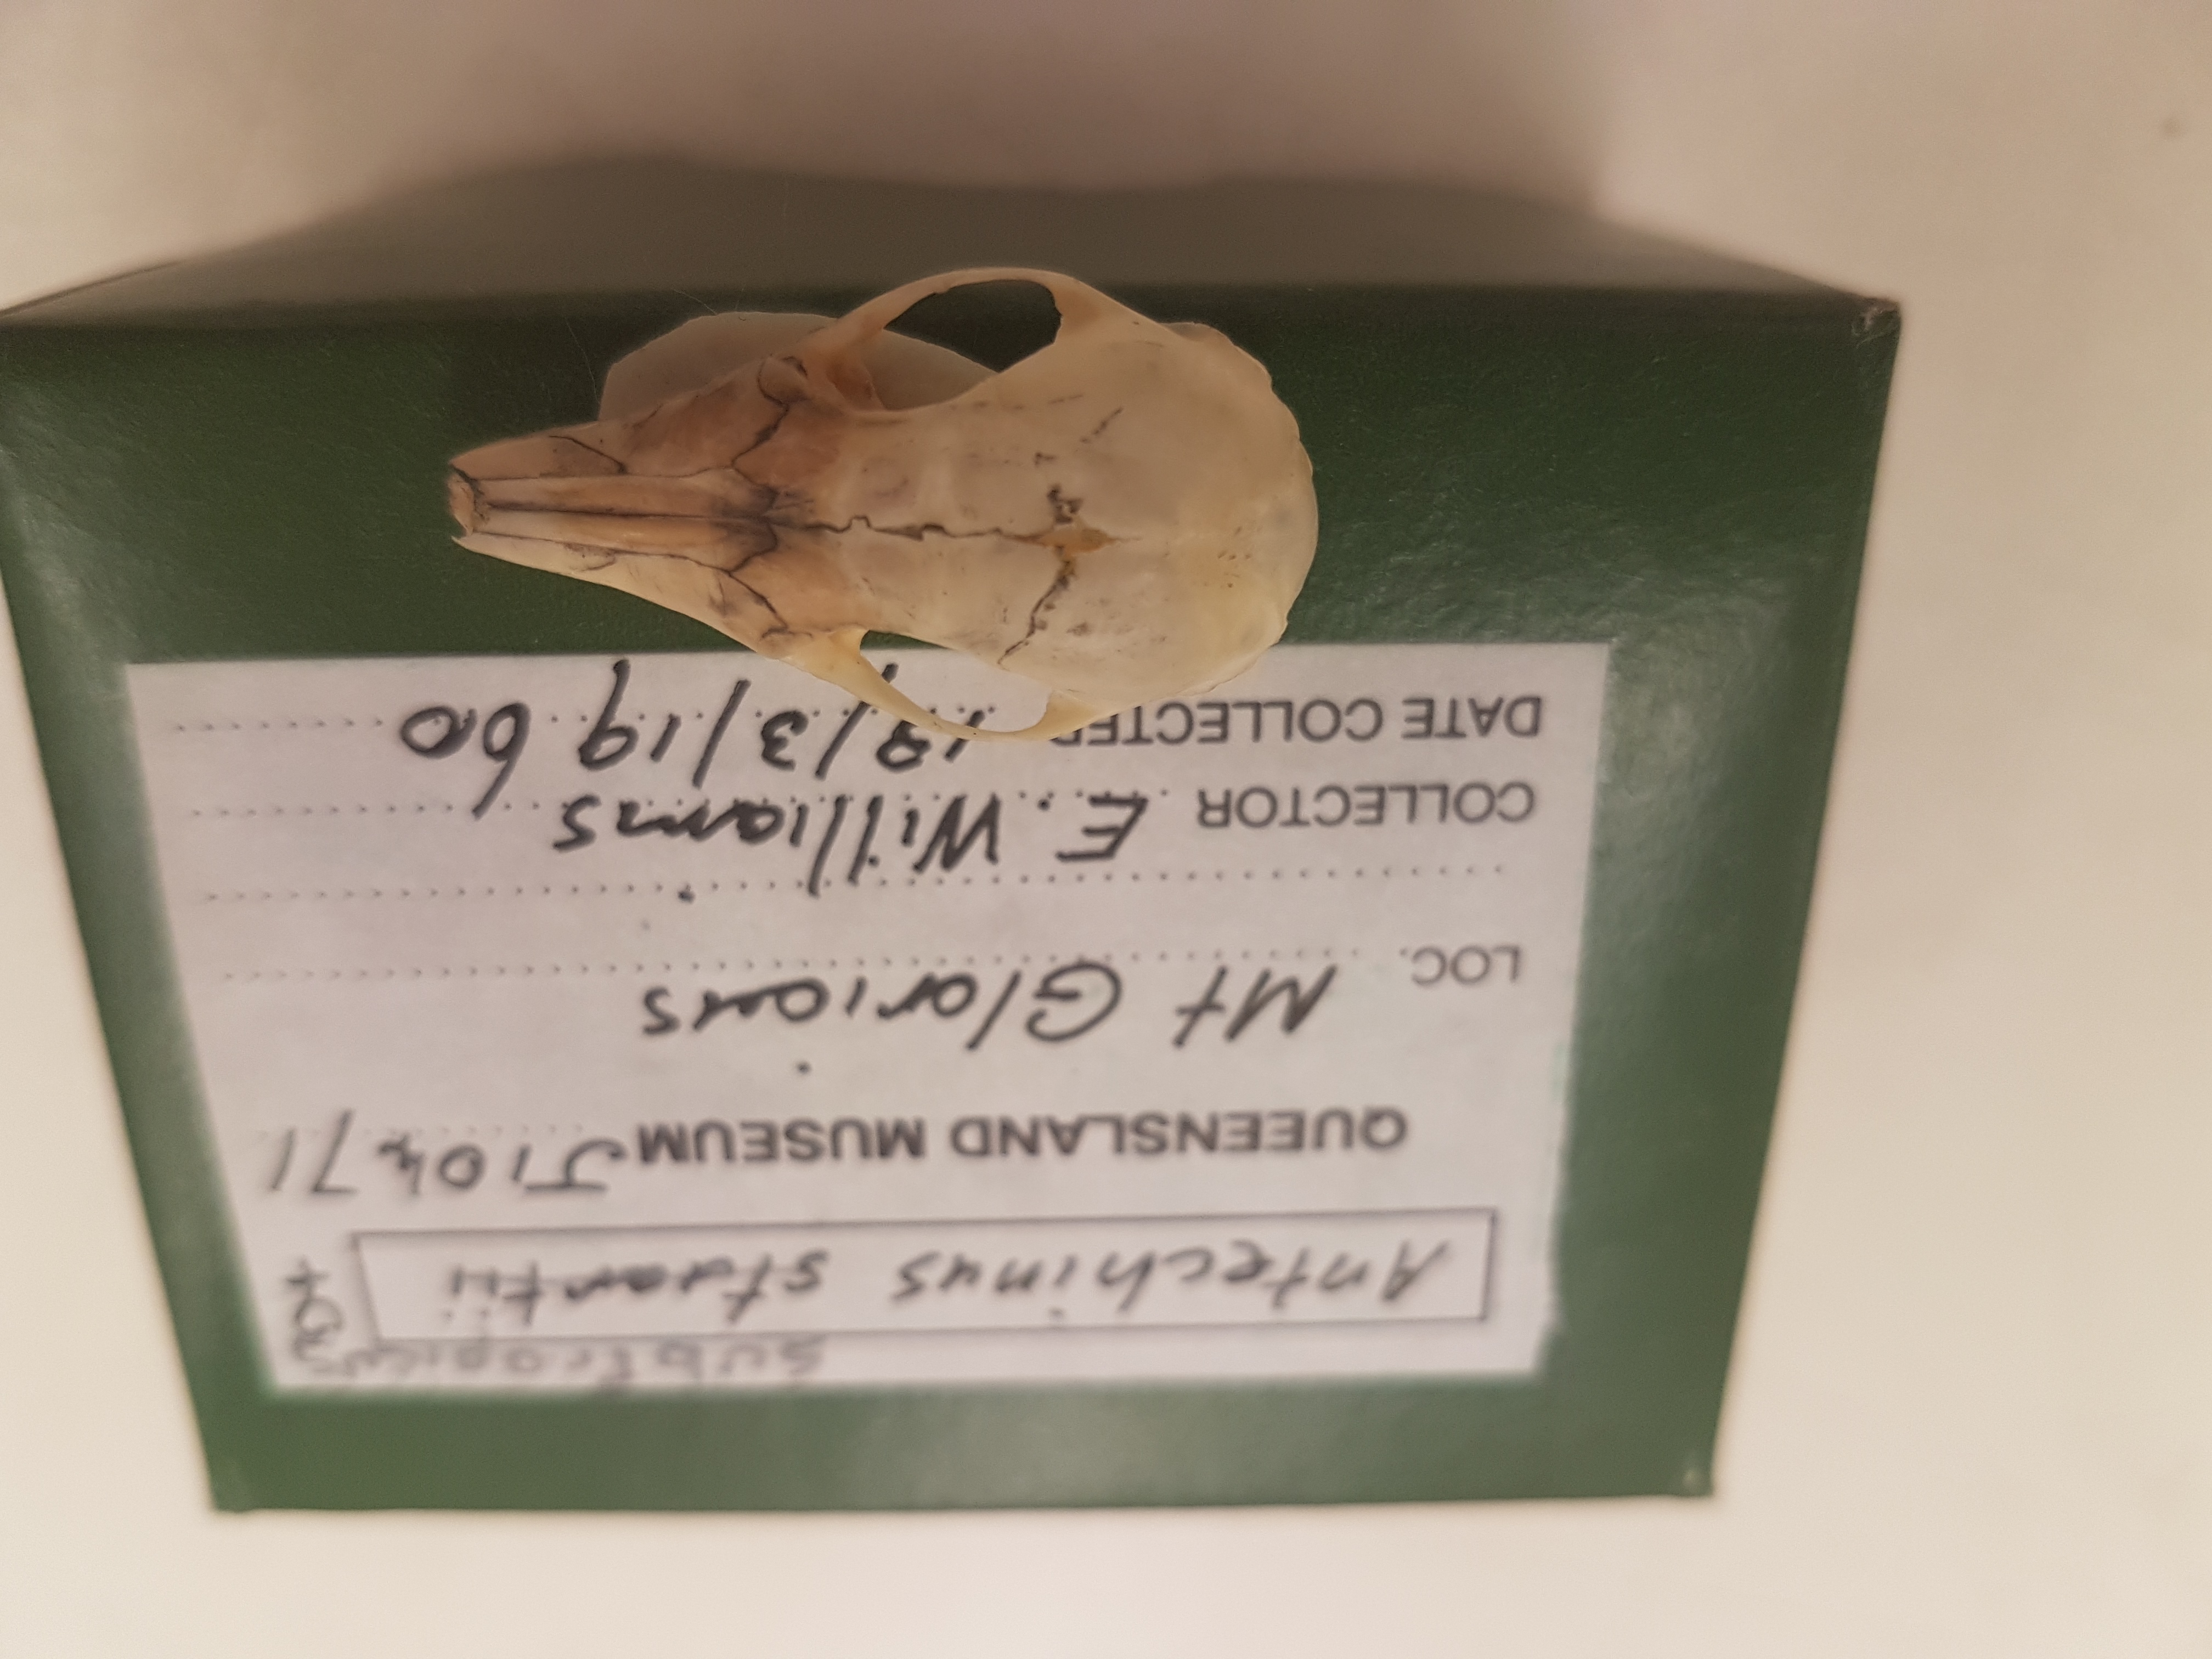 subtropicus
Antechinus stuartii ♀
QUEENSLAND MUSEUM J10471
LOC. Mt Glorious
COLLECTOR E. Williams
DATE COLLECTED 19/3/1960